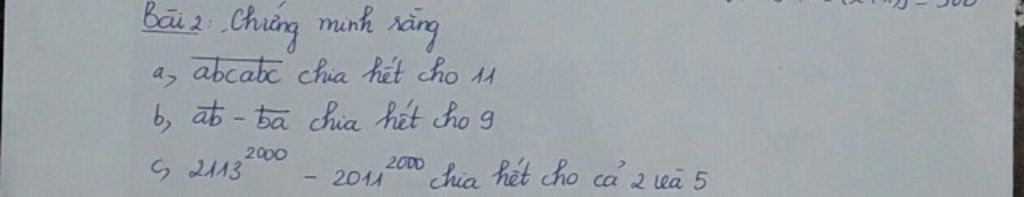 Bài 2: Chứng minh rằng
a, \overline{abcabc} chia hết cho 11
b, \overline{ab} - \overline{ba} chia hết cho 9
c, 2113^{2000} - 2011^{2000} chia hết cho cả 2 và 5